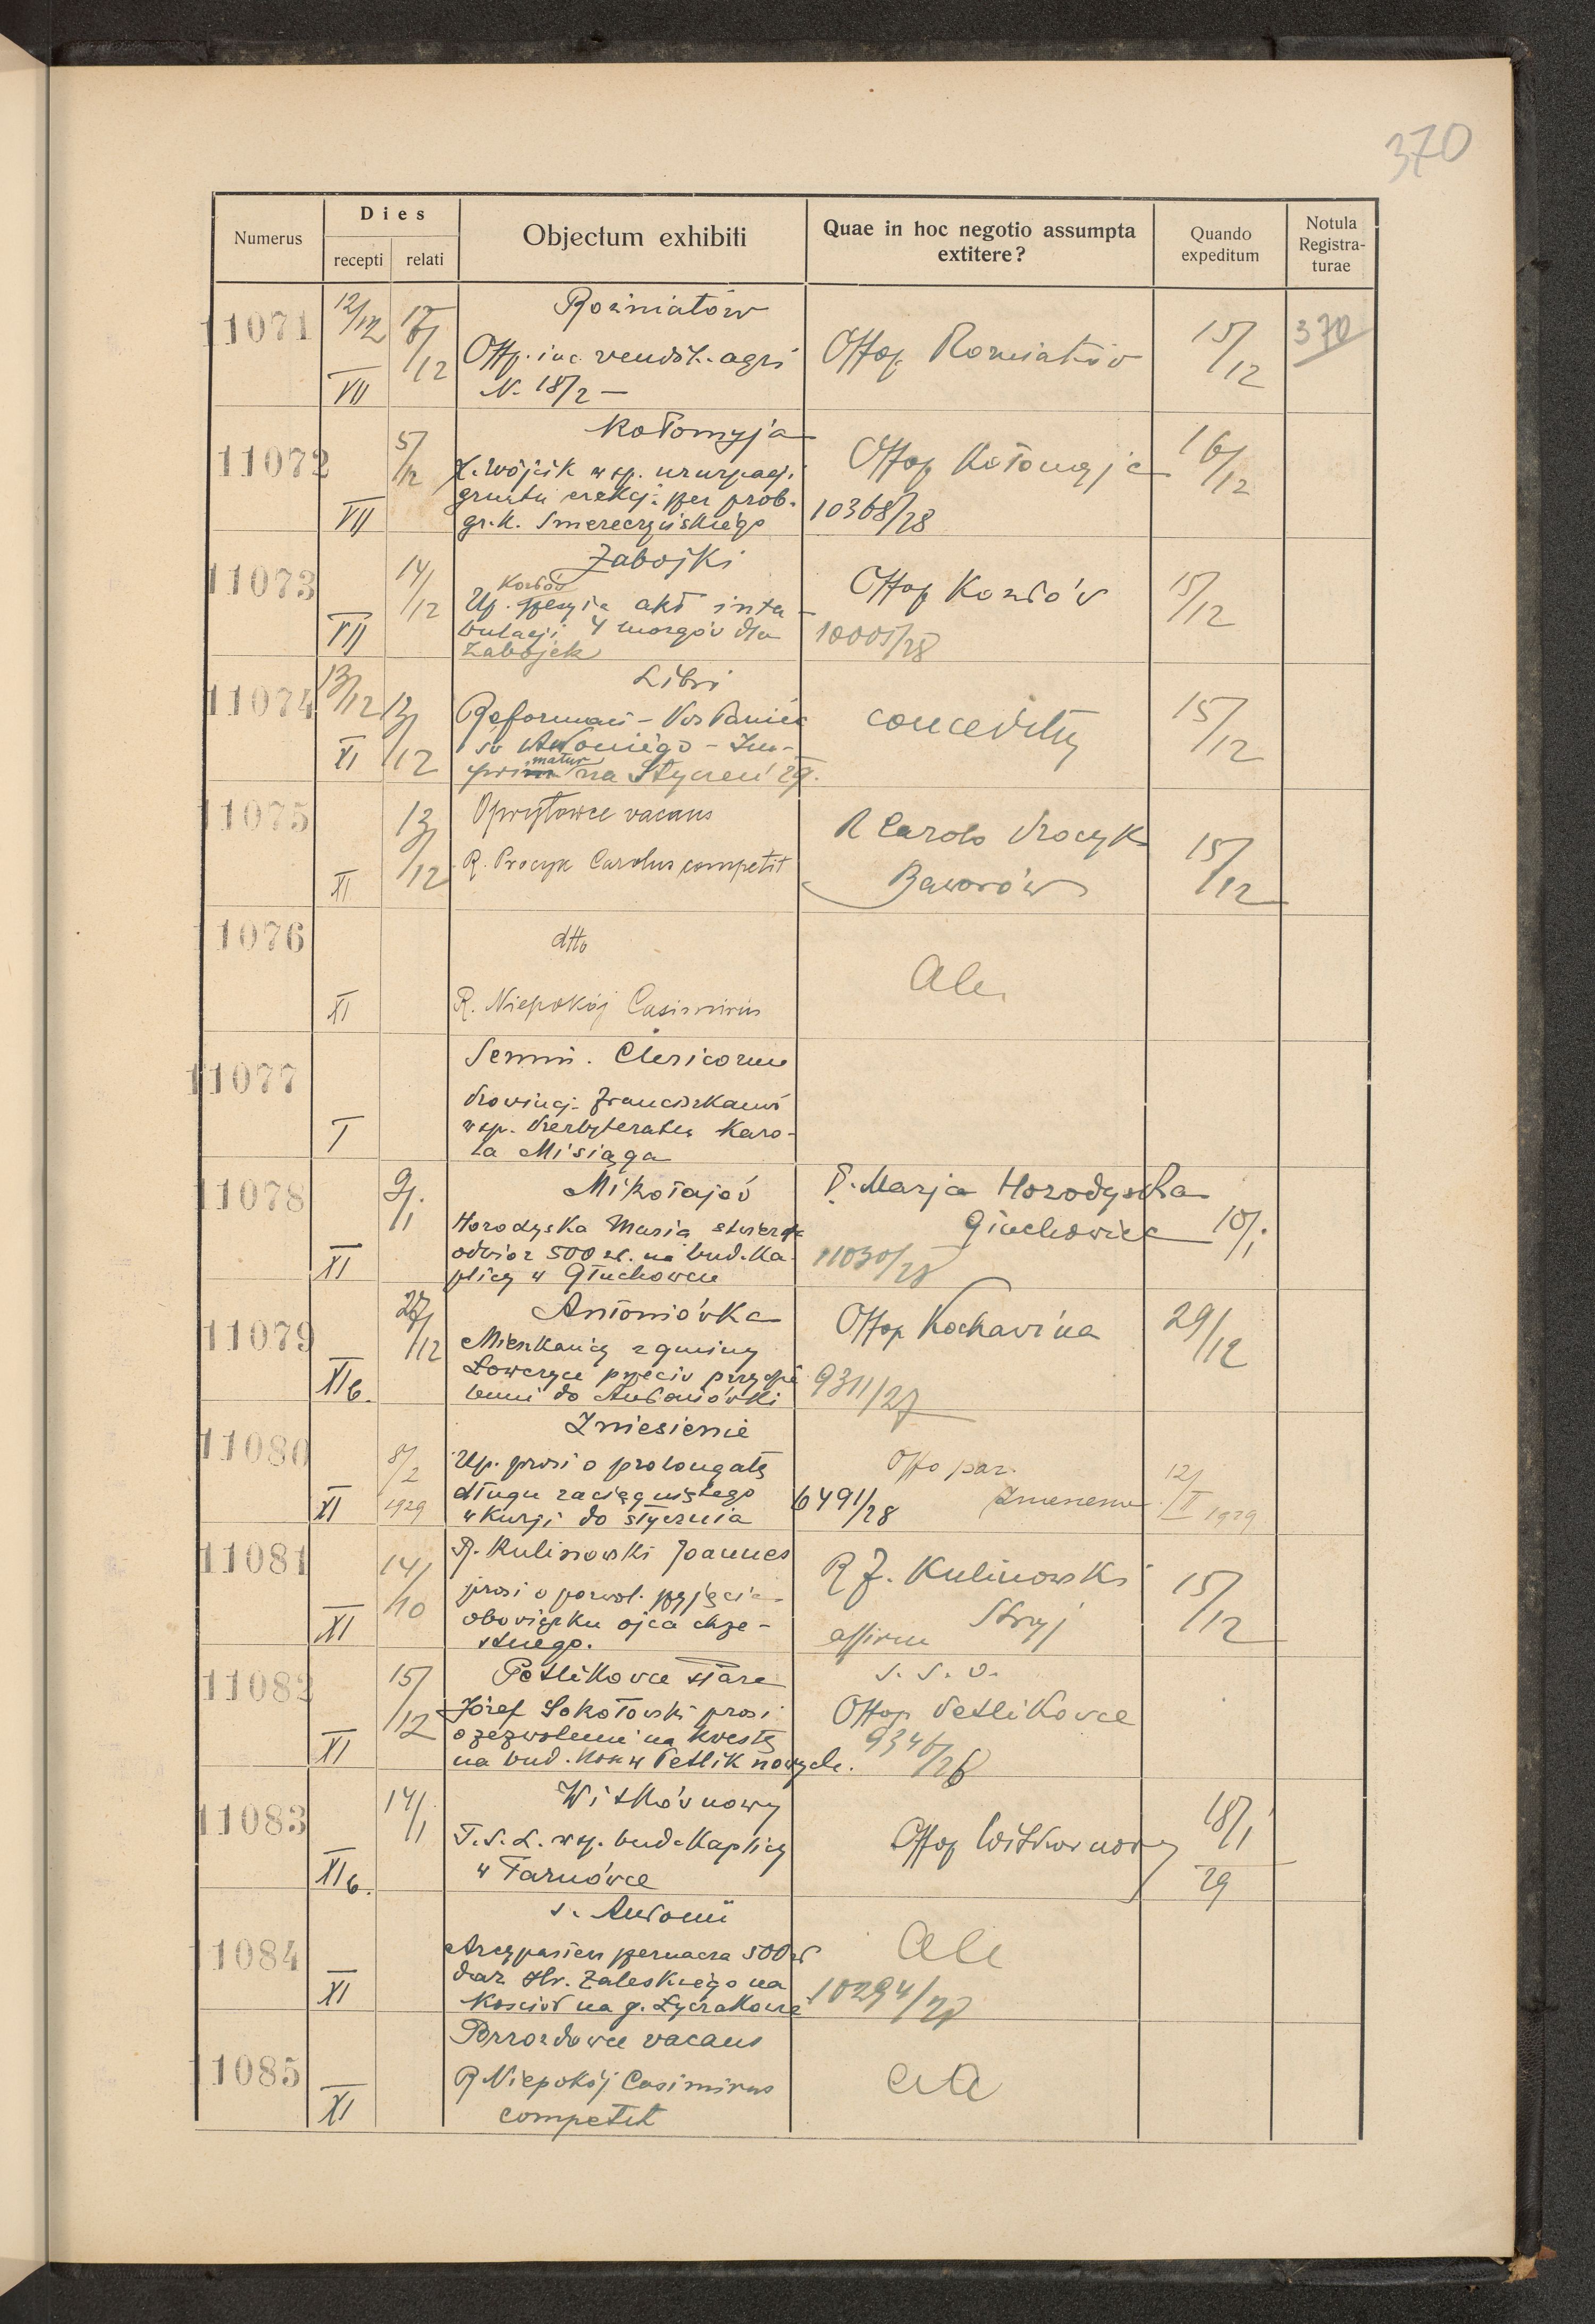 370
Numerus
Dies
recepti relati
Objectum exhibiti
Quae in hoc negotio assumpta extitere?
Quando expeditum
Notula Registra-turae
11071
12/12
VII
17/12
Rożniatów
Offp. inc. vendit. agri
N. 18/2 —
Offop Rożniatów
15/12
370
11072
VII
5/12
Kołomyja
X. Wójcik wsp. uzurpacji
gruntu erekcj. per prob.
gr. k. Smereczyńskiego
Offop Kołomyja
10368/28
16/12
11073
VII
14/12
Zabojki
Kozłów
Up. akt inta-
bulacji 4 morgów dla
Zabojek
Offop Kozłów
10005/28
15/12
11074
13/12
XI
13/12
Libri
Reformaci - Posłaniec
św Antoniego - Im-
primatur na Styczeń 29.
conceditur
15/12
11075
XI
13/12
Opryłowce vacans
R. Procyk Carolus competit
R Carolo Procyk
Baworów
15/12
11076
XI
dtto
R. Niepokój Casimirus
Ale
11077
I
Semin. Clericorum
Prowincj. Franciszkanów
wsp. Presbyteratu Karo-
la Misiąga
11078
XI
9/1
Mikołajów
Horodyska Maria stwierdz
odbiór 500 zł. na bud. Ka-
plicy w Głuchowcu
P. Marja Horodyska
Głuchowiec
11030/28
10/1
11079
XI6.
27/12
Antoniówka
Mieszkańcy z gminy
Łowczyce przeciw przydzie
leniu do Antoniówki
Offop Kochawina
9311/27
29/12
11080
XI
8/2
1929
Zniesienie
Up. prosi o prolongatę
długu zaciągniętego
w Kurji do stycznia
Offo par.
Zniesienie
6491/28
12/II 1929
11081
XI
14/10
R. Kulinowski Joannes
prosi o pozwol. przyjęcia
obowiązku ojca chrze-
stnego.
R J. Kulinowski
Stryj
affirm
15/12
11082
XI
15/12
Petlikowce stare
Józef Sokołowski prosi
o zezwolenie na kwestę
na bud. kośc w Petlik nowych.
S. S. O.
Offop Petlikowce
9346/28
11083
XI6.
14/1
Witków nowy
T. S. L. wsp. bud. Kaplicy
w Tarnówce
Offop Witków nowy
18/1
29
11084
XI
s. Antonii
Arcypasterz przeznacza 500 zł
dar Hr. Zaleskiego na
Kościół na g. Łyczakowie
Ale
10294/28
11085
XI
Brzozdowce vacans
R Niepokój Casimirus
competit